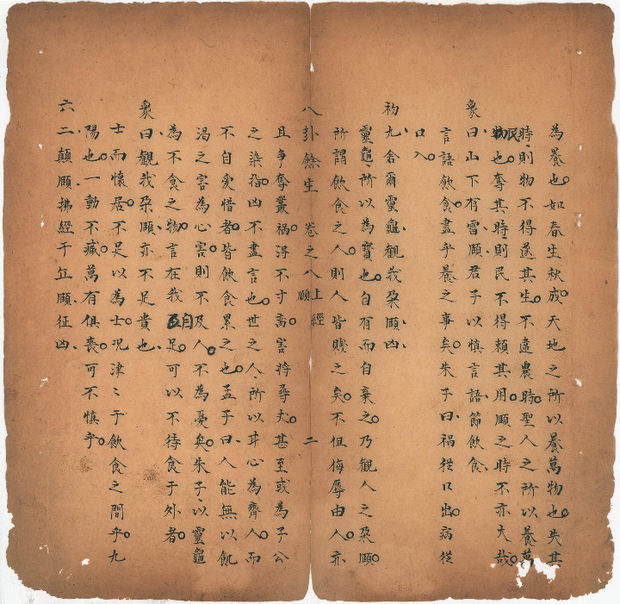 為養也如春生秋成天地之所以養萬物也失其
時則物不得遂其生不違農時聖人之所以養萬
民物也奪其時則民不得賴其用頤之時不亦大哉
象曰山下有雷頤君子以慎言語節飲食
言語飲食盡乎養之事矣朱子曰禍從口出病從
口入
初九舍爾靈龜觀我朶頤凶
靈龜所以為寶也自有而自棄之乃觀人之朶頤
所謂飲食之人則人皆賤之矣不但侮辱由人亦
八卦餘生 卷之八上經 頤 二
且爭奪叢禍得不寸而害將尋丈甚至或為子公
之染指凶不盡言也世之人所以耳心為齊人而
不自愛惜者皆飲食累之也孟子曰人能無以飢
渴之害為心害則不及人不為憂矣朱子以靈龜
為不食之物言在我自足可以不待食于外者
象曰觀我朶頤亦不足貴也
士而懷居不足以為士況津〻于飲食之間乎九
陽也一動不臧萬有俱喪可不慎乎
六二顛頤拂經于丘頤征凶